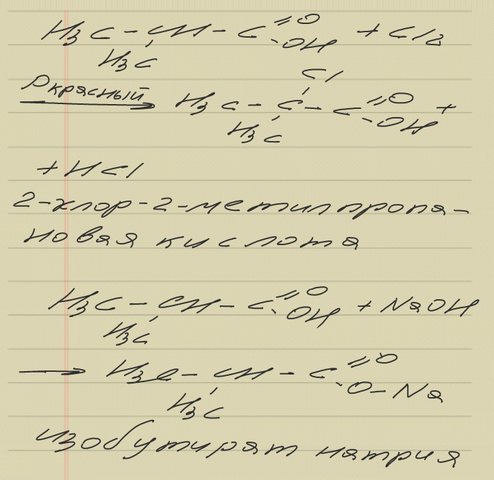 H₃C - CH - C =O -OH + Cl₂
H₃C
Pкрасный → H₃C - C - C =O -OH +
Cl
H₃C
+ HCl
2-хлор-2-метилпропа-
новая кислота
H₃C - CH - C =O -OH + NaOH
H₃C
→ H₃C - CH - C =O -O-Na
H₃C
изобутират натрия